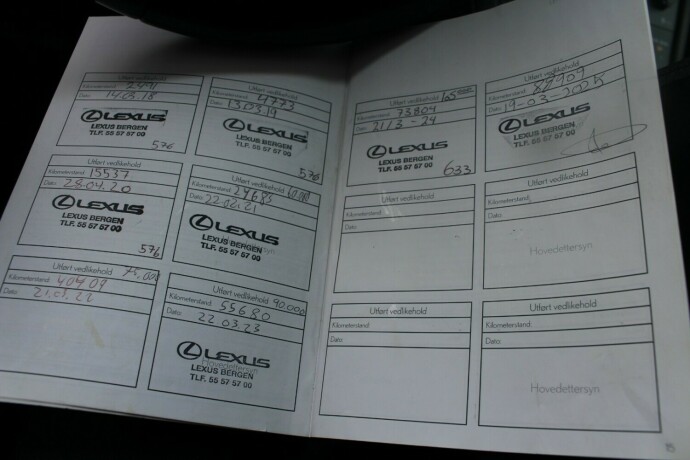 Utført vedlikehold
Kilometerstand: 2491
Dato: 14.03.18
LEXUS
LEXUS BERGEN
TLF. 55 57 57 00
576
Utført vedlikehold
Kilometerstand: 4773
Dato: 13.03.19
LEXUS
LEXUS BERGEN
TLF. 55 57 57 00
576
Utført vedlikehold
Kilometerstand: 15537
Dato: 28.04.20
LEXUS
LEXUS BERGEN
TLF. 55 57 57 00
576
Utført vedlikehold 60.000
Kilometerstand: 29685
Dato: 22.02.21
LEXUS
Hovedettersyn
LEXUS BERGEN
TLF. 55 57 57 00
Utført vedlikehold 75.000
Kilometerstand: 40409
Dato: 21.01.22
Utført vedlikehold 90.000
Kilometerstand: 55680
Dato: 22.03.23
LEXUS
Hovedettersyn
LEXUS BERGEN
TLF. 55 57 57 00
Utført vedlikehold 105000
Kilometerstand: 73804
Dato: 21/3-24
LEXUS
LEXUS BERGEN
TLF. 55 57 57 00
633
Utført vedlikehold
Kilometerstand:
Dato: 19-03-2025
LEXUS
LEXUS BERGEN
TLF. 55 57 57 00
Utført vedlikehold
Kilometerstand:
Dato:
Utført vedlikehold
Kilometerstand:
Dato:
Hovedettersyn
Utført vedlikehold
Kilometerstand:
Dato:
Utført vedlikehold
Kilometerstand:
Dato:
Hovedettersyn
15